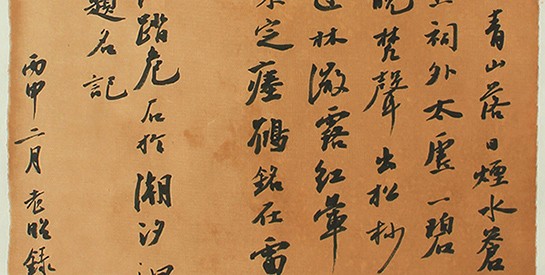 青山落日煙水蒼
祠外太虛一碧
晚梵聲出松杪
林激露紅葉
定瘞鶴銘在雷
踏危石於潮汐
題名記
丙申二月老昭錄